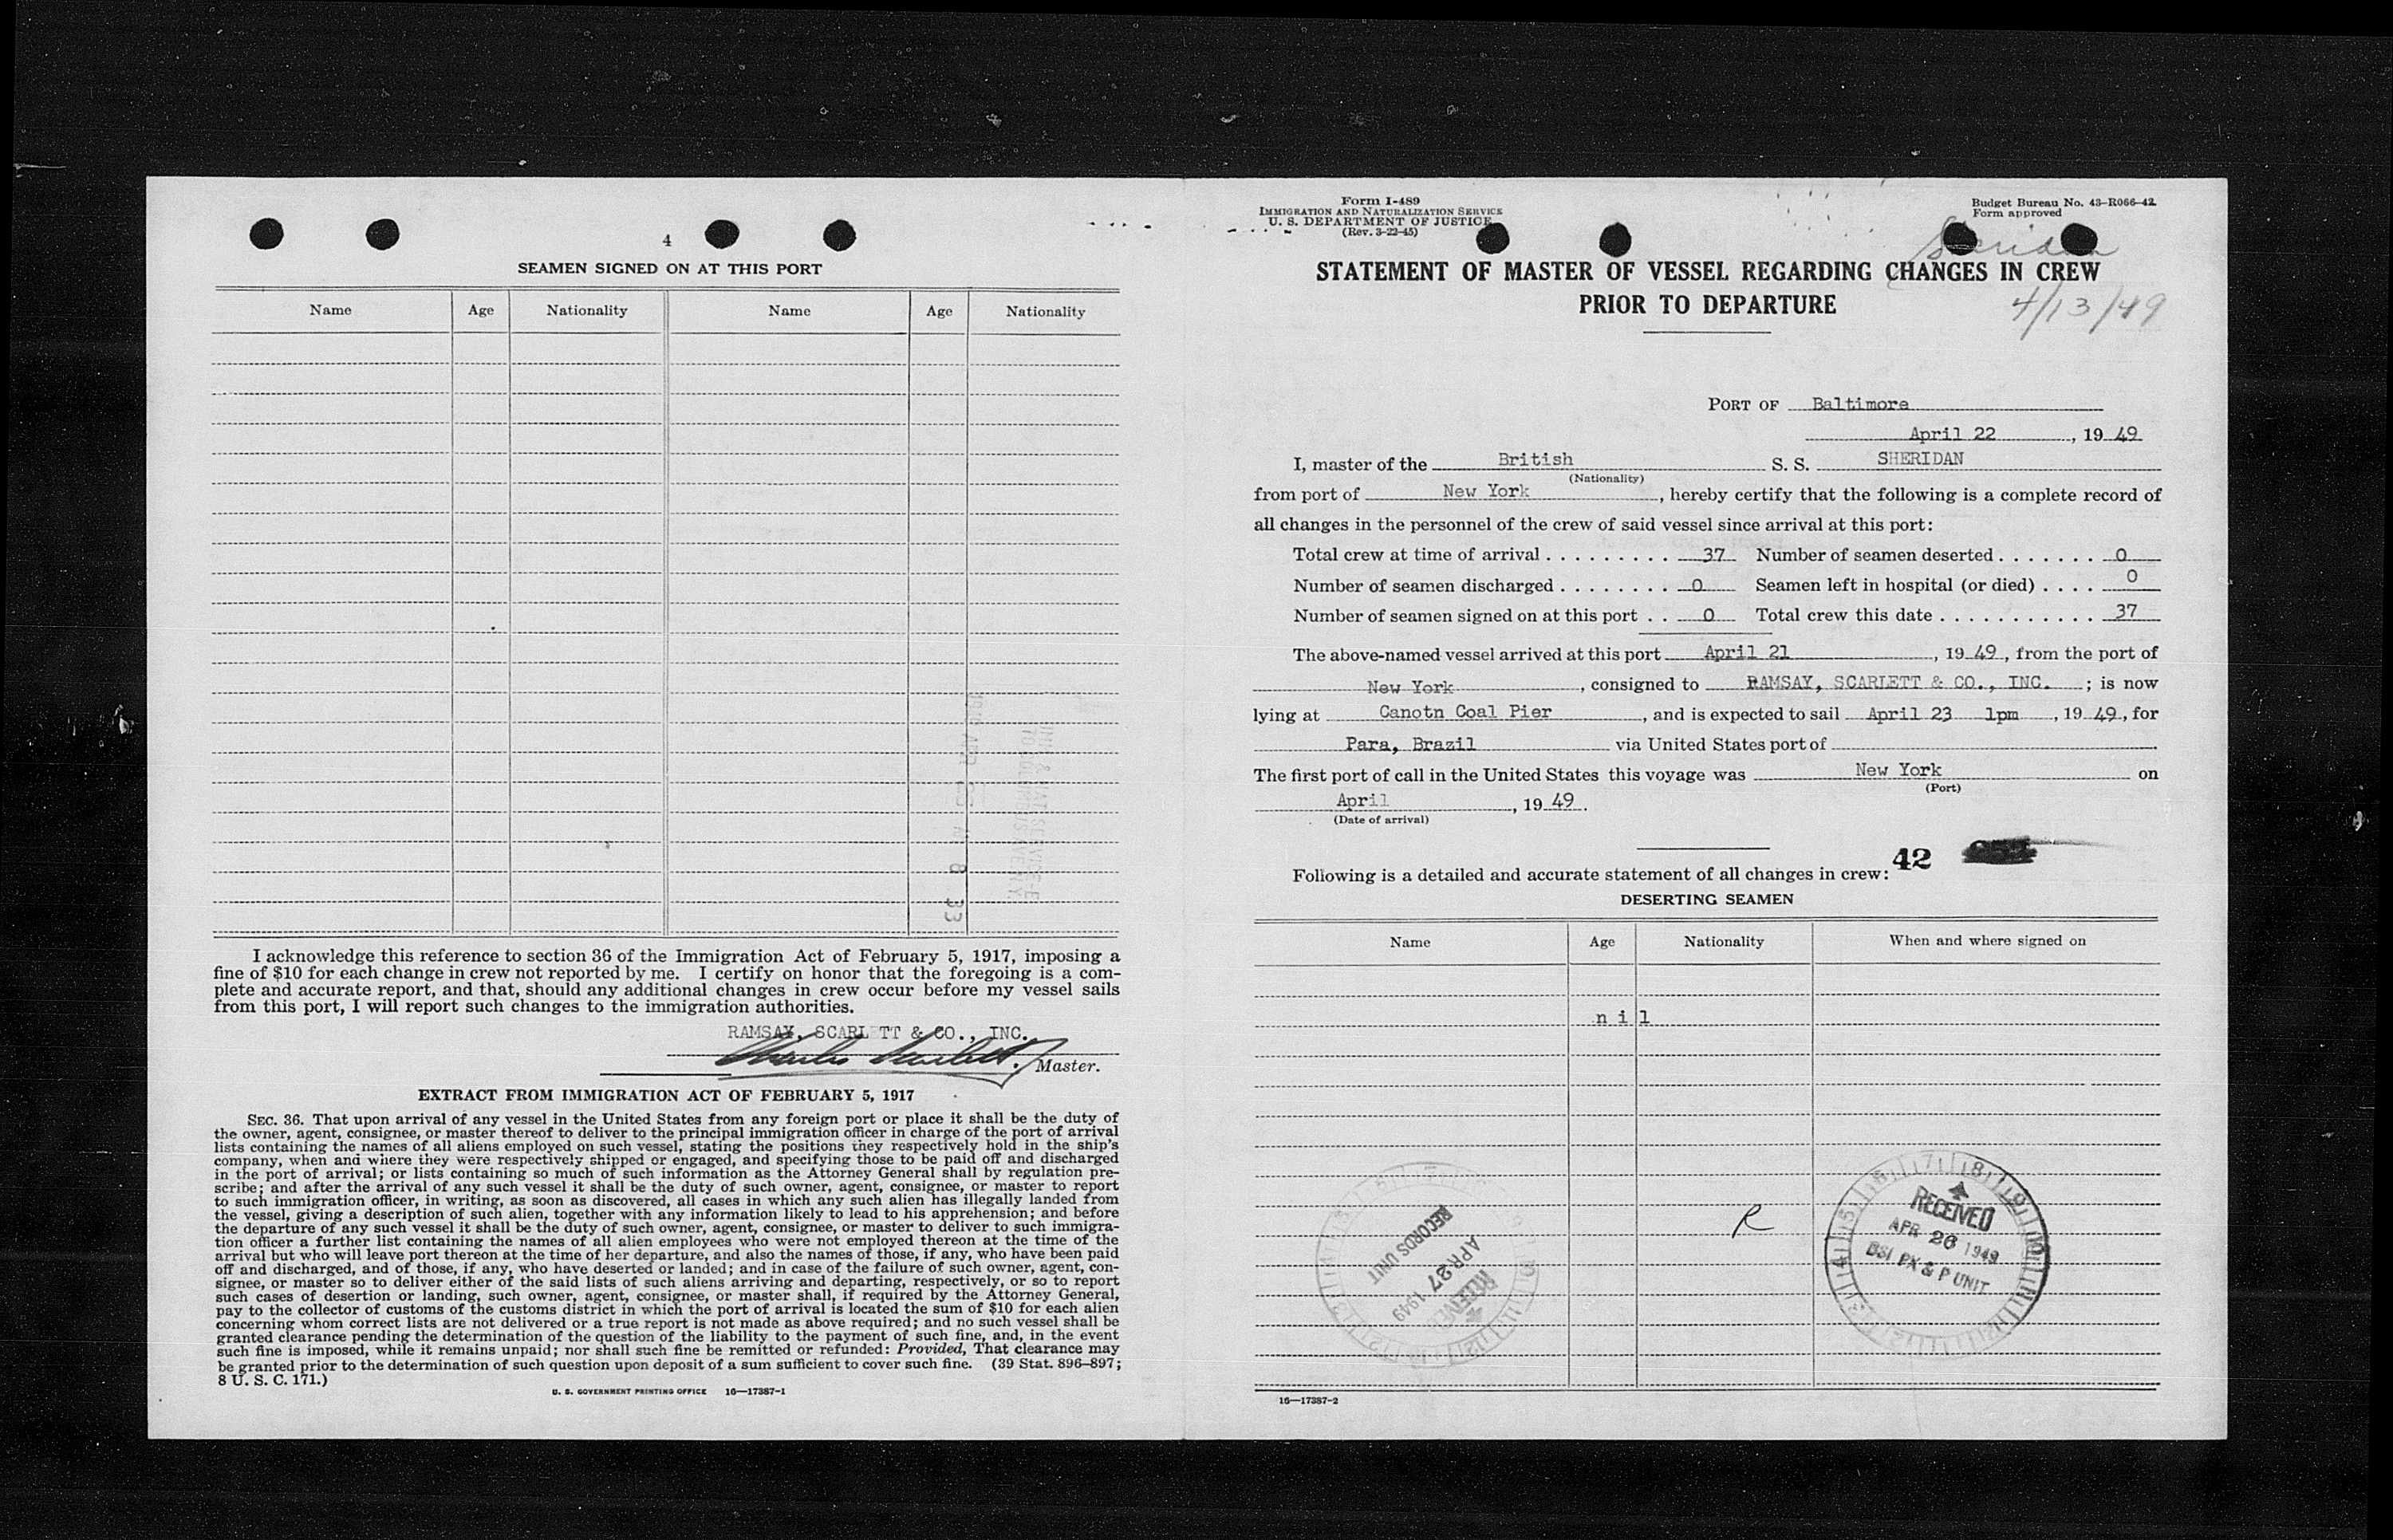 4
SEAMEN SIGNED ON AT THIS PORT
Name Age Nationality Name Age Nationality
I acknowledge this reference to section 36 of the Immigration Act of February 5, 1917, imposing a
fine of $10 for each change in crew not reported by me. I certify on honor that the foregoing is a com-
plete and accurate report, and that, should any additional changes in crew occur before my vessel sails
from this port, I will report such changes to the immigration authorities.
RAMSAY, SCARL TT & CO., INC.
Charles Scarlett Master.
EXTRACT FROM IMMIGRATION ACT OF FEBRUARY 5, 1917
SEC. 36. That upon arrival of any vessel in the United States from any foreign port or place it shall be the duty of
the owner, agent, consignee, or master thereof to deliver to the principal immigration officer in charge of the port of arrival
lists containing the names of all aliens employed on such vessel, stating the positions they respectively hold in the ship's
company, when and where they were respectively shipped or engaged, and specifying those to be paid off and discharged
in the port of arrival; or lists containing so much of such information as the Attorney General shall by regulation pre-
scribe; and after the arrival of any such vessel it shall be the duty of such owner, agent, consignee, or master to report
to such immigration officer, in writing, as soon as discovered, all cases in which any such alien has illegally landed from
the vessel, giving a description of such alien, together with any information likely to lead to his apprehension; and before
the departure of any such vessel it shall be the duty of such owner, agent, consignee, or master to deliver to such immigra-
tion officer a further list containing the names of all alien employees who were not employed thereon at the time of the
arrival but who will leave port thereon at the time of her departure, and also the names of those, if any, who have been paid
off and discharged, and of those, if any, who have deserted or landed; and in case of the failure of such owner, agent, con-
signee, or master so to deliver either of the said lists of such aliens arriving and departing, respectively, or so to report
such cases of desertion or landing, such owner, agent, consignee, or master shall, if required by the Attorney General,
pay to the collector of customs of the customs district in which the port of arrival is located the sum of $10 for each alien
concerning whom correct lists are not delivered or a true report is not made as above required; and no such vessel shall be
granted clearance pending the determination of the question of the liability to the payment of such fine, and, in the event
such fine is imposed, while it remains unpaid; nor shall such fine be remitted or refunded: Provided, That clearance may
be granted prior to the determination of such question upon deposit of a sum sufficient to cover such fine. (39 Stat. 896–897;
8 U. S. C. 171.)
U. S. GOVERNMENT PRINTING OFFICE 16—17387-1
Form I-489
IMMIGRATION AND NATURALIZATION SERVICE
U. S. DEPARTMENT OF JUSTICE
(Rev. 3-22-45)
Budget Bureau No. 43-R066-42
Form approved
Sheridan
STATEMENT OF MASTER OF VESSEL REGARDING CHANGES IN CREW
PRIOR TO DEPARTURE
4/13/49
PORT OF Baltimore
April 22, 19 49
I, master of the British S. S. SHERIDAN
(Nationality)
from port of New York, hereby certify that the following is a complete record of
all changes in the personnel of the crew of said vessel since arrival at this port:
Total crew at time of arrival . . . . . . . . . 37 Number of seamen deserted . . . . . . . 0
Number of seamen discharged . . . . . . . . 0 Seamen left in hospital (or died) . . . . 0
Number of seamen signed on at this port . . 0 Total crew this date . . . . . . . . . . . . 37
The above-named vessel arrived at this port April 21, 19 49, from the port of
New York, consigned to RAMSAY, SCARLETT & CO., INC. ; is now
lying at Canotn Coal Pier, and is expected to sail April 23 1pm, 19 49, for
Para, Brazil via United States port of
The first port of call in the United States this voyage was New York on
(Port)
April, 19 49.
(Date of arrival)
42
Following is a detailed and accurate statement of all changes in crew:
DESERTING SEAMEN
Name Age Nationality When and where signed on
n i l
R
RECEIVED
APR 26 1949
BSI PX & P UNIT
RECEIVED
APR 27 1949
RECORDS UNIT
16—17387-2